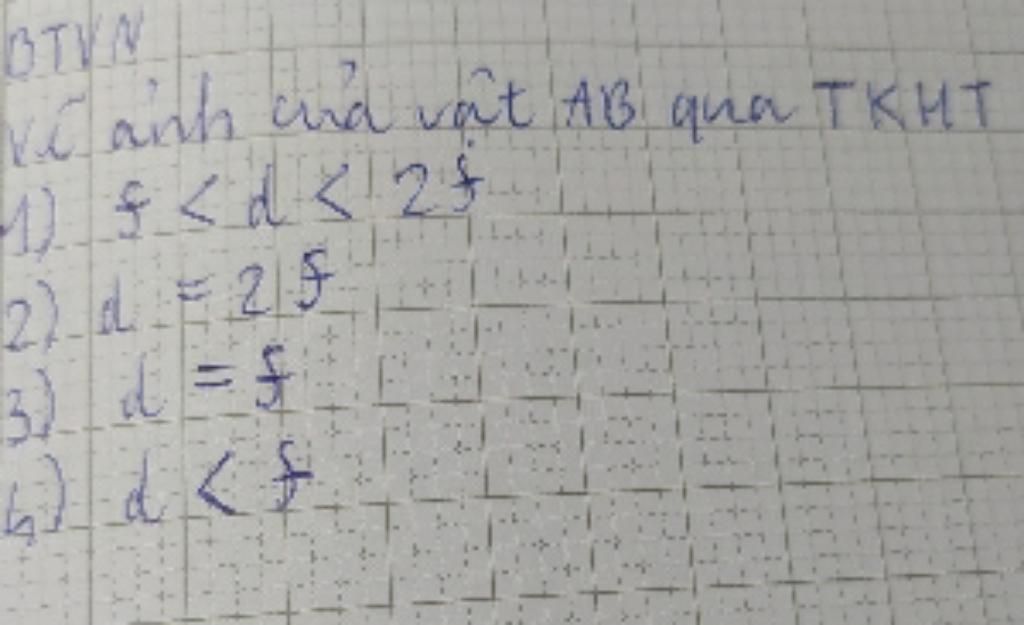 BTVN
Vẽ ảnh của vật AB qua TKHT
1) f < d < 2f
2) d = 2f
3) d = f
4) d < f